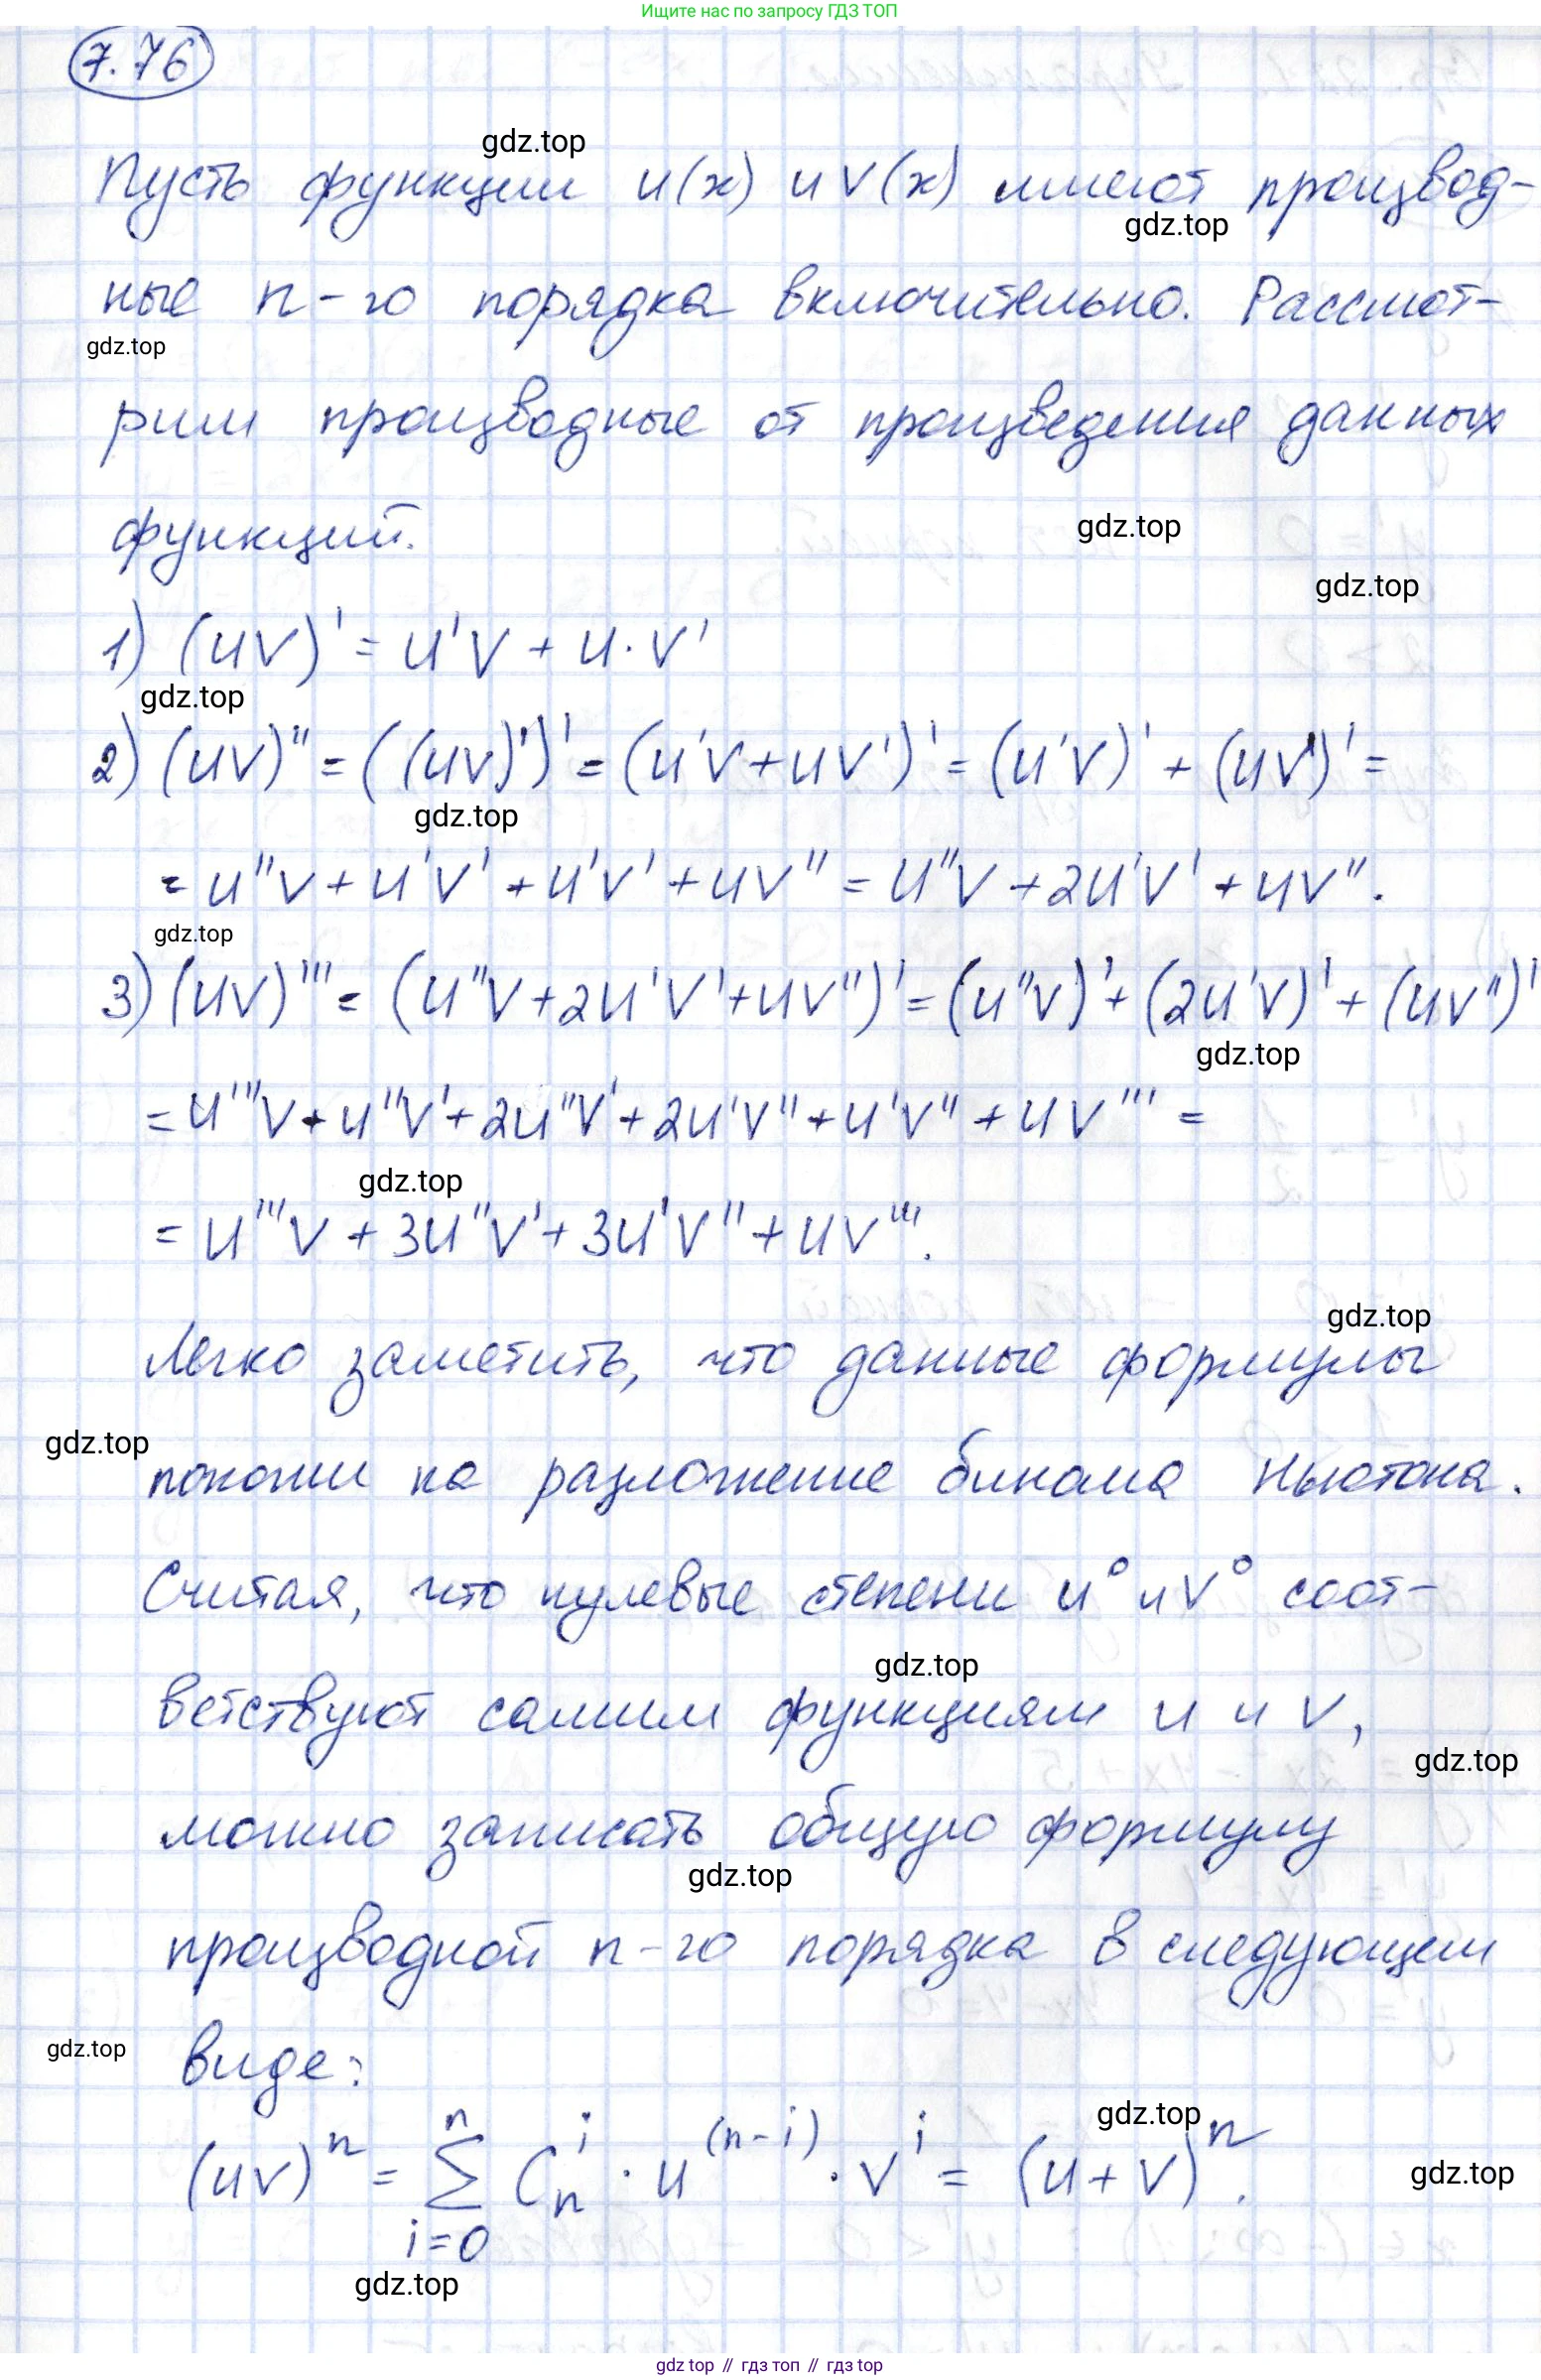 Ищите нас по запросу ГДЗ ТОП
7.76
gdz.top
Пусть функции u(x) и v(x) имеют производ-
gdz.top
ные n-го порядка включительно. Рассмот-
gdz.top
рим производные от произведения данных
функций.
gdz.top
gdz.top
1) (uv)' = u'v + u·v'
gdz.top
2) (uv)'' = ((uv)')' = (u'v+uv')' = (u'v)' + (uv')' =
gdz.top
= u''v + u'v' + u'v' + uv'' = u''v + 2u'v' + uv''.
gdz.top
3) (uv)''' = (u''v+2u'v'+uv'')' = (u''v)' + (2u'v)' + (uv'')'
gdz.top
= u'''v + u''v' + 2u''v' + 2u'v'' + u'v'' + uv''' =
gdz.top
= u'''v + 3u''v' + 3u'v'' + uv'''.
gdz.top
Легко заметить, что данные формулы
gdz.top
похожи на разложение бинома Ньютона.
Считая, что нулевые степени u⁰ и v⁰ соот-
gdz.top
ветствуют самим функциям u и v,
gdz.top
можно записать общую формулу
gdz.top
производной n-го порядка в следующем
gdz.top
виде:
gdz.top
(uv)ⁿ = ∑ⁿ_{i=0} Cⁱₙ · u^{(n-i)} · vⁱ = (u+v)ⁿ.
gdz.top
gdz.top
gdz.top // гдз топ // gdz.top